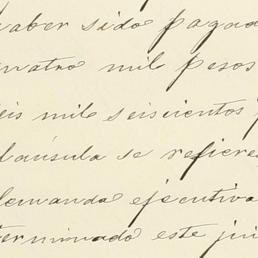 haber sido pagad
cuatro mil pesos
seis mil seiscientos p
cláusula se refiere
demanda ejecutiva
terminado este jui